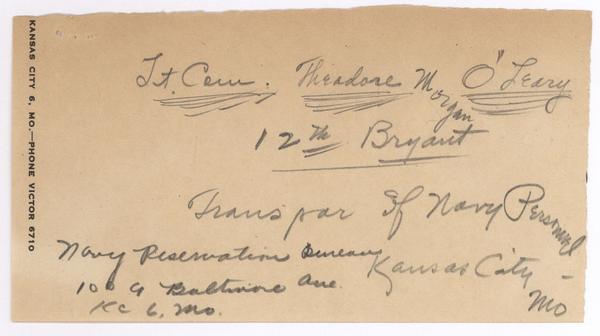 KANSAS CITY 6, MO.—PHONE VICTOR 6710
Lt. Com. Theodore Morgan O'Leary
12th Bryant
Transpor of Navy Personnel -
Kansas City Mo
Navy Reservation Bureau
1009 Baltimore Ave.
KC 6, Mo.